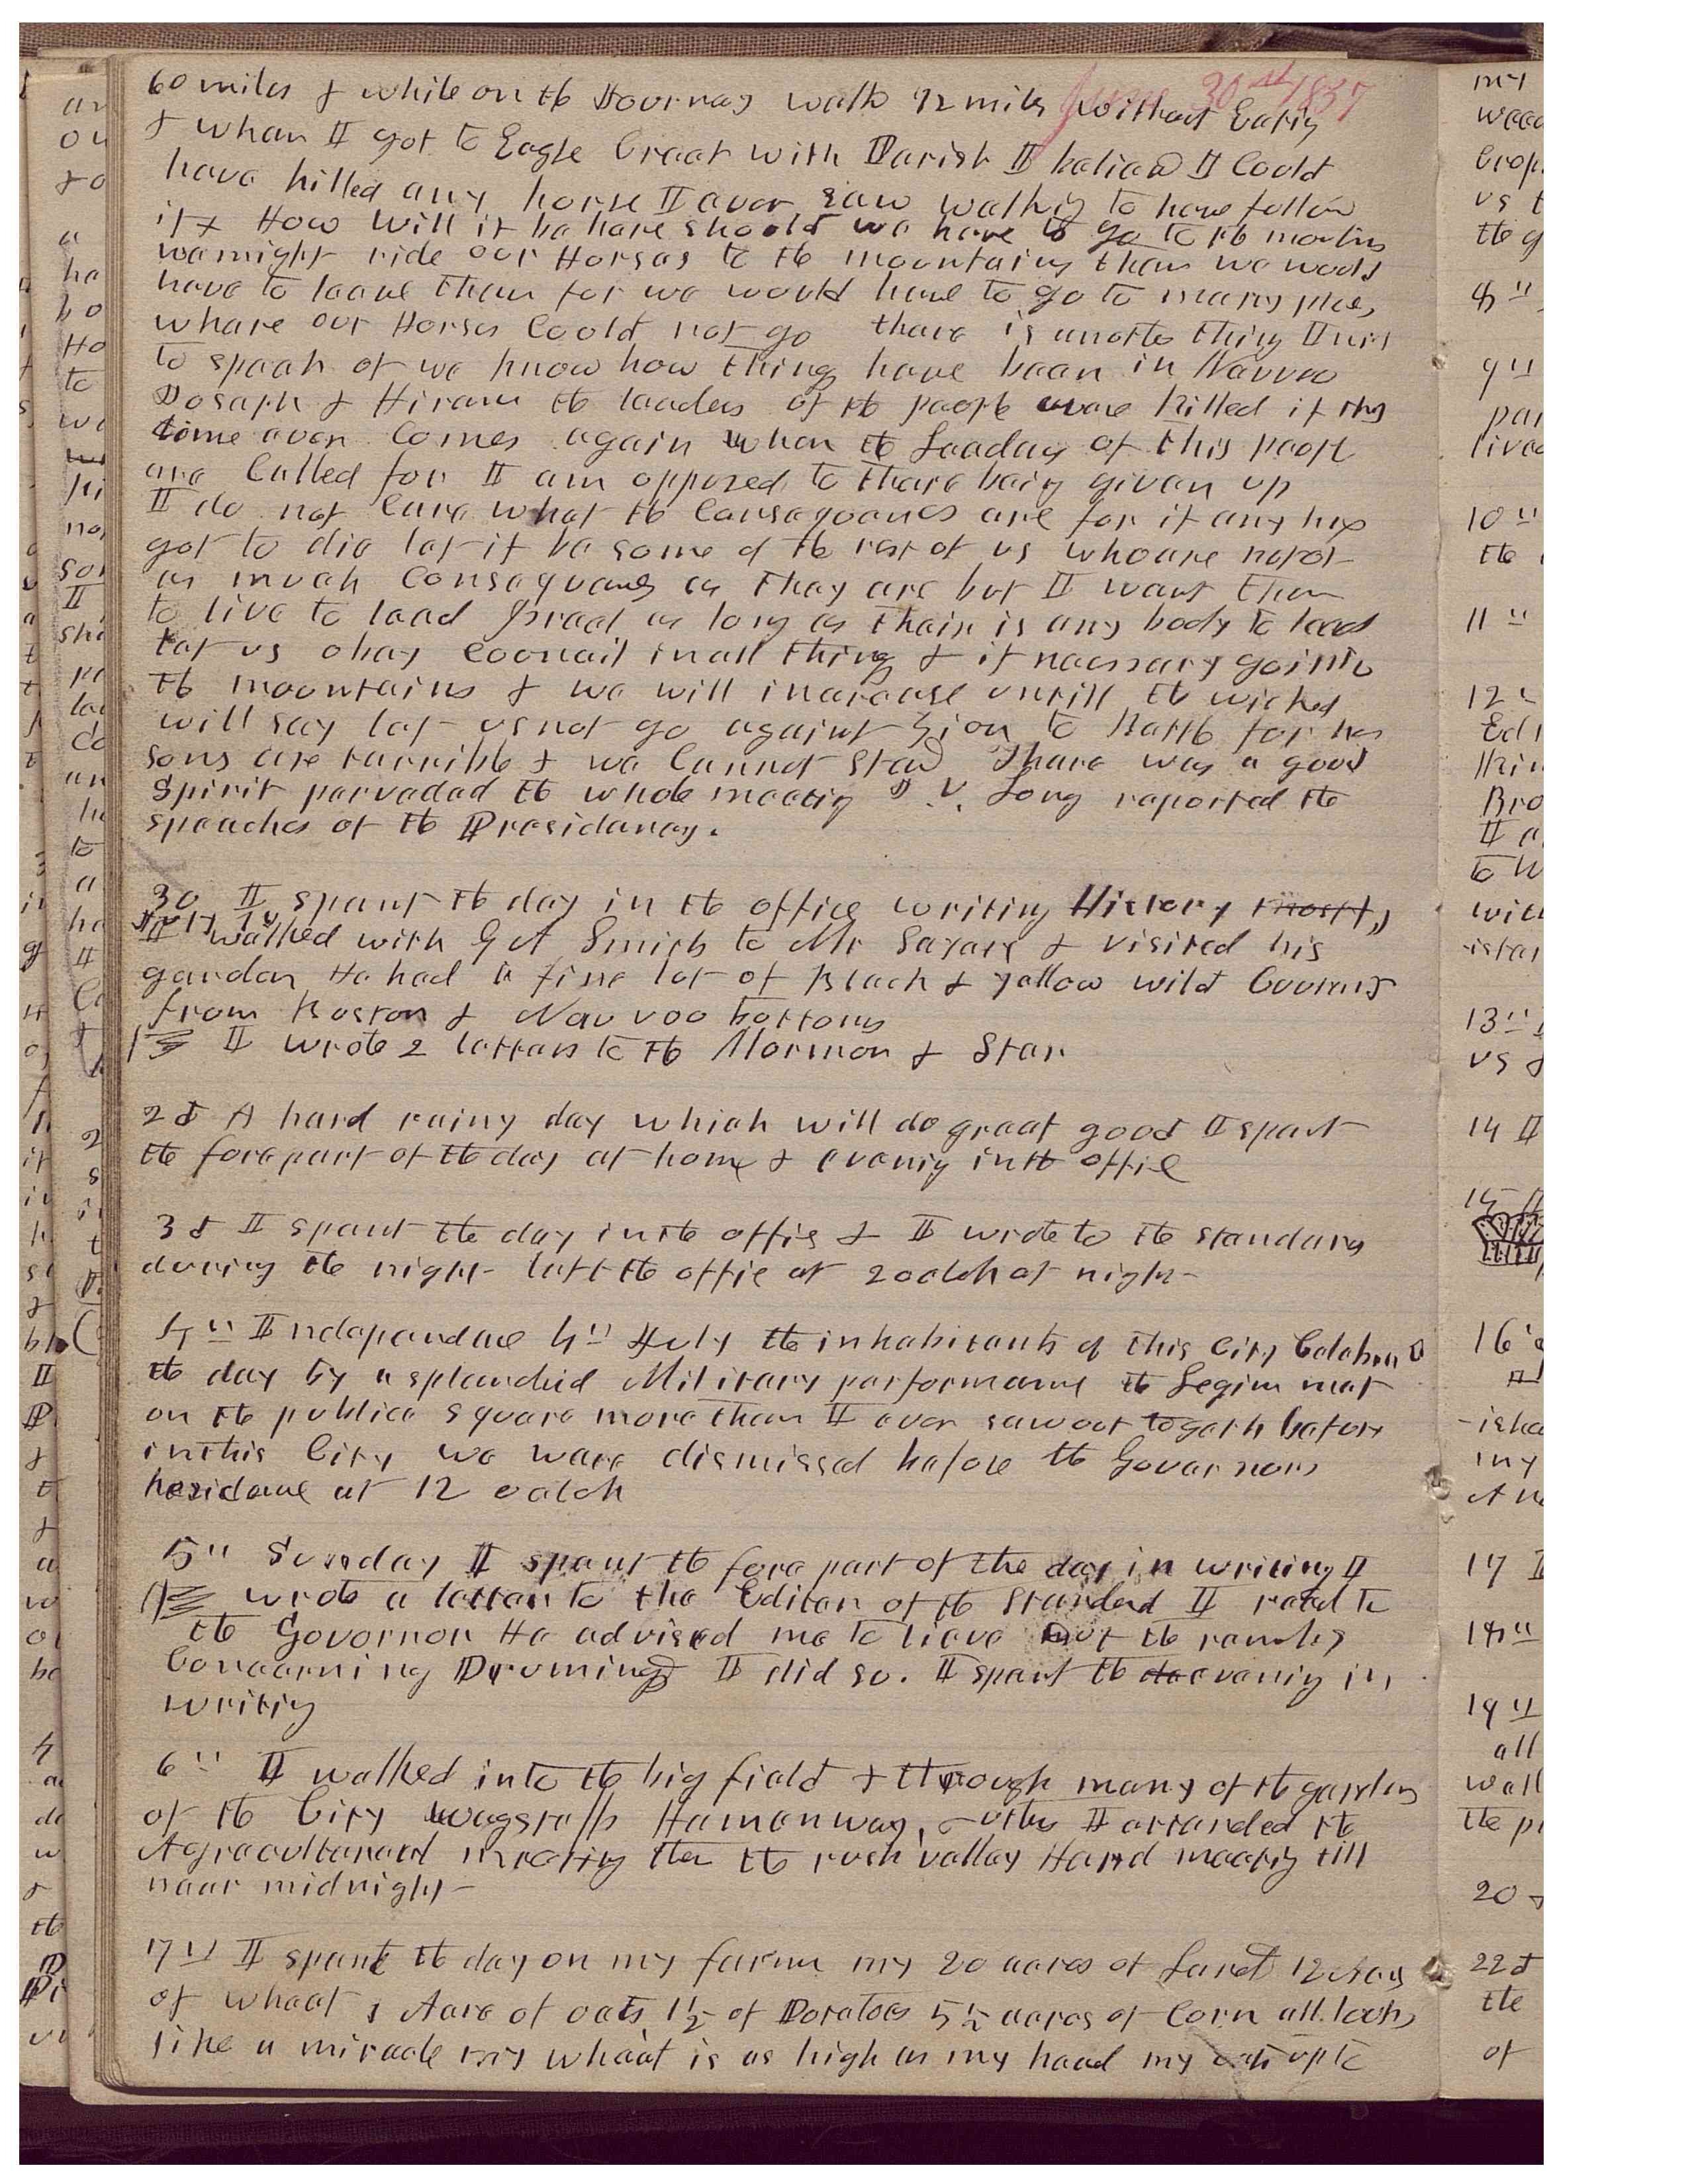 June 30st 1857
60 miles & while on the Journey walk 92 miles without Eating
& when I got to Eagle Creek with Parish I believd I Could
have killed any horse I ever saw walking to have follow
it & How will it be here should we have to go to the mountins
we might ride our Horses to the mountains then we would
have to leave them for we would have to go to many places
whare our Horses Could not go there is anothe thing I wish
to speak of we know how things have been in Nauvoo
Joseph & Hiram the leaders of the people were killed if the
time ever Comes again when the Leaders of this people
are Called for I am opposed to there being given up
I do not Care what the Consequences are for if any has
got to die let it be some of the rest of us who are not of
as much Consequence as they are but I want them
to live to lead Israel as long as their is any body to lead
let us obey Councail in all things & if necessary go into
the mountains & we will increase untill the wicked
will say let us not go against Zion to Battle for her
sons are terrible & we Cannot stand There was a good
spirit pervaded the whole meeting J. V. Long reported the
speeches of the Presidency.
30 I spent the day in the office writing History
July 1st
I walked with G A Smith to Mr Sayers & visited his
garden He had a fine lot of Black & yellow wild Courants
from Boston & Nauvoo bottoms
I wrote 2 letters to the Mormon & Star
2d A hard rainy day which will do great good I spent
the forepart of the day at home & evening in the office
3d I spent the day in the office & I wrote to the standard
during the night left the office at 2 oclok at night
4" Independance 4" July the inhabitants of this City Celebrated
the day by a splendid Military performance the Legion met
on the publice square more than I ever saw out togeth before
in this City we were dismissed before the Governors
Residence at 12 oclok
5" Sunday I spent the fore part of the day in writing I
wrote a letter to the Editor of the Standard I read to
the Governor He advised me to lieve out the remarks
Concerning Drumings I did so. I spent the evening in
writing
6" I walked into the big field & through many of the gardens
of the City Wagstaffs Hemenway, & othes I attended the
Agricultural meeting then the rush valley Hard meeting till
near midnight
7" I spent the day on my farm my 20 acres of Land 12 Acres
of wheat 1 Acre of oats 1½ of Potatoes 5½ acres of Corn all looks
like a miracle my wheat is as high as my head my oats up to